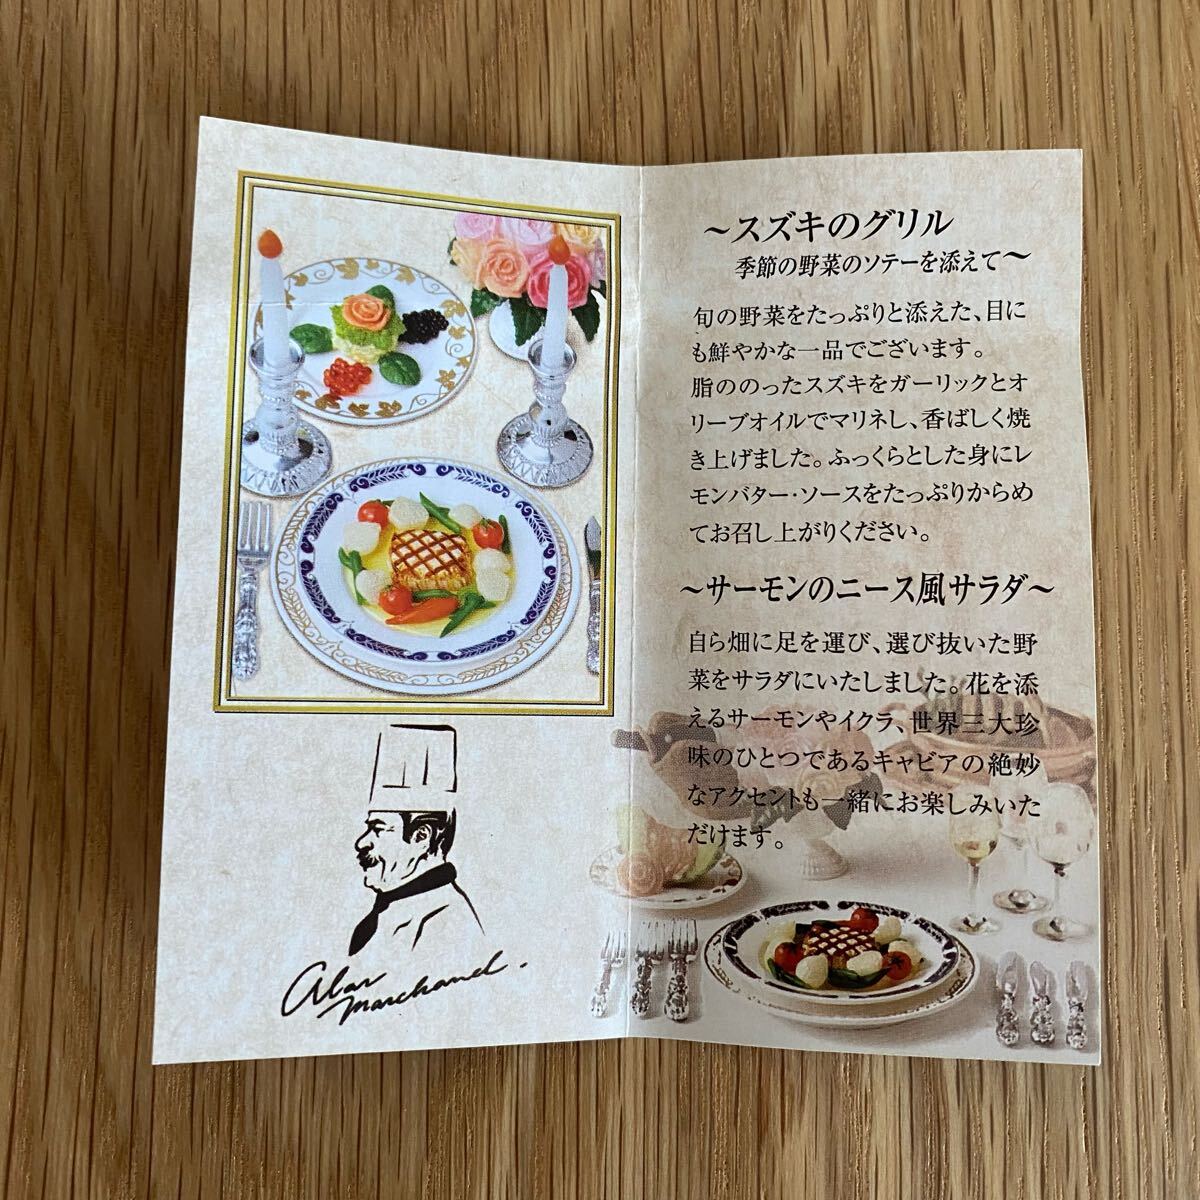 ～スズキのグリル
季節の野菜のソテーを添えて～
旬の野菜をたっぷりと添えた、目に
も鮮やかな一品でございます。
脂ののったスズキをガーリックとオ
リーブオイルでマリネし、香ばしく焼
き上げました。ふっくらとした身にレ
モンバター・ソースをたっぷりからめ
てお召し上がりください。
～サーモンのニース風サラダ～
自ら畑に足を運び、選び抜いた野
菜をサラダにいたしました。花を添
えるサーモンやイクラ、世界三大珍
味のひとつであるキャビアの絶妙
なアクセントも一緒にお楽しみいた
だけます。
Alan
Marchand.